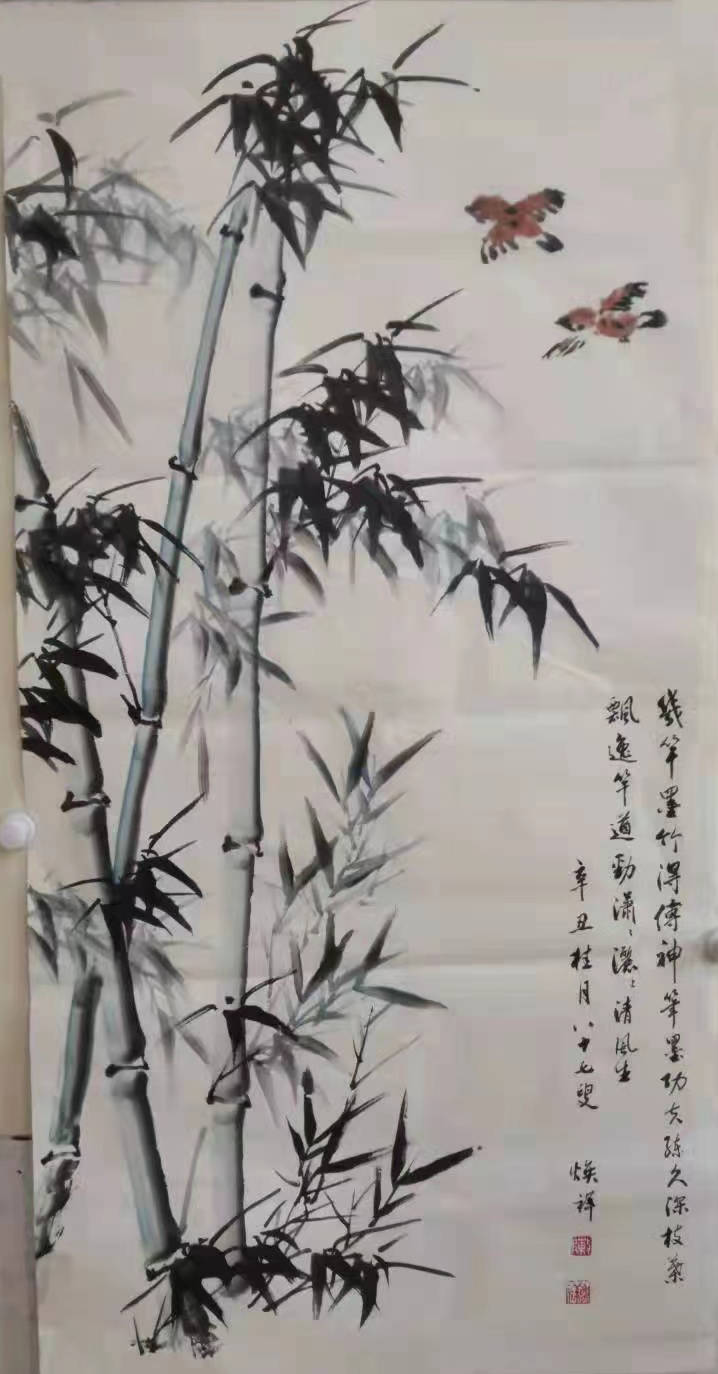 幾竿墨竹得傳神筆墨功夫練久深枝葉
飄逸竿遒勁瀟〻灑〻清風生
辛丑桂月八十七叟
煥祥